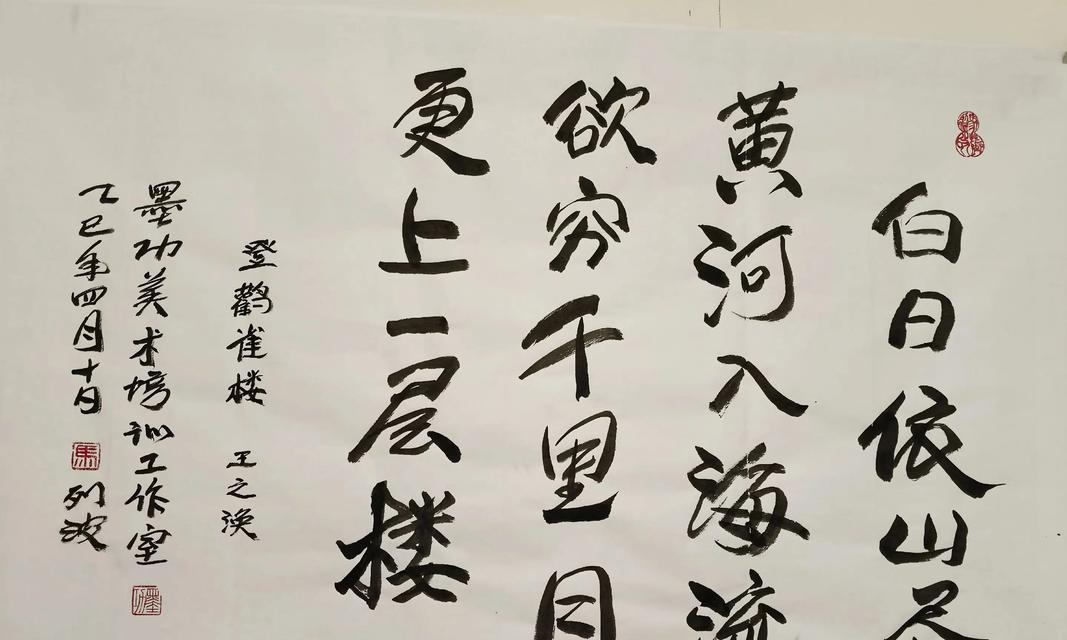 白日依山尽
黄河入海流
欲穷千里目
更上一层楼
登鹳雀楼 王之涣
墨功美术培训工作室
乙巳年四月十日 列波